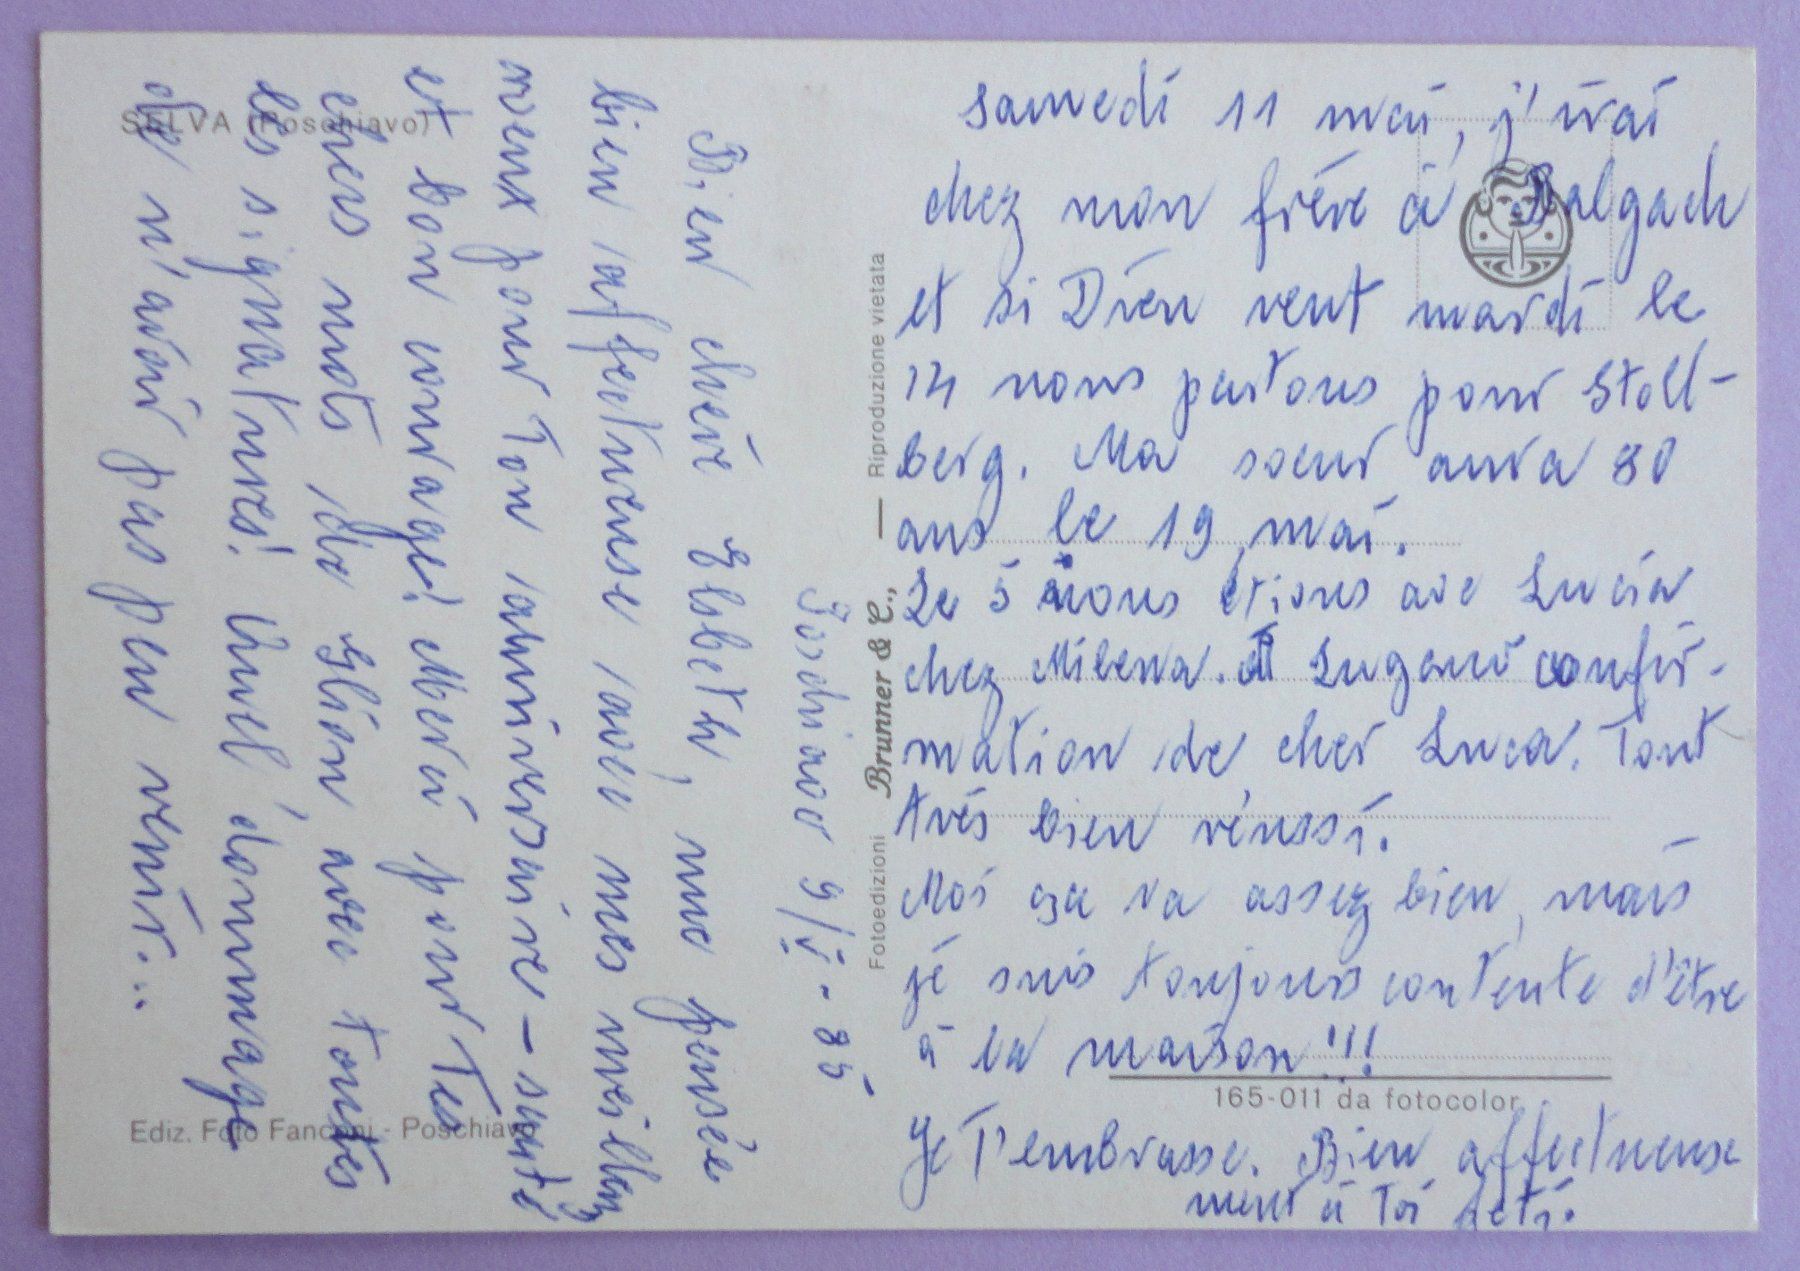 Poschiavo 9/V - 85
Bien chère Elsbeth, une pensée
bien affectueuse avec mes meilleurs
voeux pour Ton anniversaire – santé
et bon courage! Merci pour Tes
chers mots de Glion avec toutes
les signatures! Quel dommage
de n'avoir pas peu venir...
samedi 11 mai, j'irai
chez mon frère à Balgach
et si Dieu veut mardi le
14 nous partons pour Stoll-
berg. Ma soeur aura 80
ans le 19 mai.
Le 5 nous étions ave Lucia
chez Milena. à Lugano confir-
mation de cher Luca. Tout
très bien réussi.
Moi ça va assez bien, mais
je suis toujours contente d'être
à la maison!!!
Je T'embrasse. Bien affectueuse
ment à Toi
SELVA (Poschiavo)
Ediz. Foto Fanconi - Poschiavo
Fotoedizioni Brunner & C., — Riproduzione vietata
165-011 da fotocolor